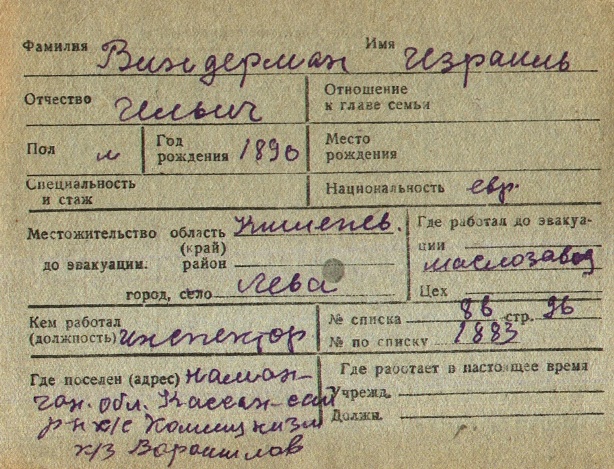 Фамилия Виндерман Имя Израиль
Отчество Ильич
Отношение к главе семьи
Пол м
Год рождения 1890
Место рождения
Специальность и стаж
Национальность евр.
Местожительство область Кишенев.
(край)
до эвакуации. район
город, село Лева
Где работал до эвакуа-
ции
маслозавод
Цех
Кем работал
(должность) инспектор
№ списка 86 стр. 96
№ по списку 1883
Где поселен (адрес) наман-
ган. обл. Кассан-сай
р-н х/с Коммунизм
к/з Ворошилов
Где работает в настоящее время
Учрежд.
Должн.